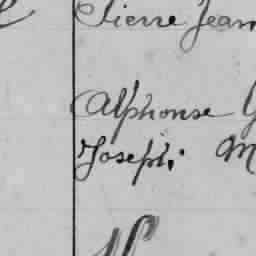 Pierre Jean
Alphonse G
Joseph M